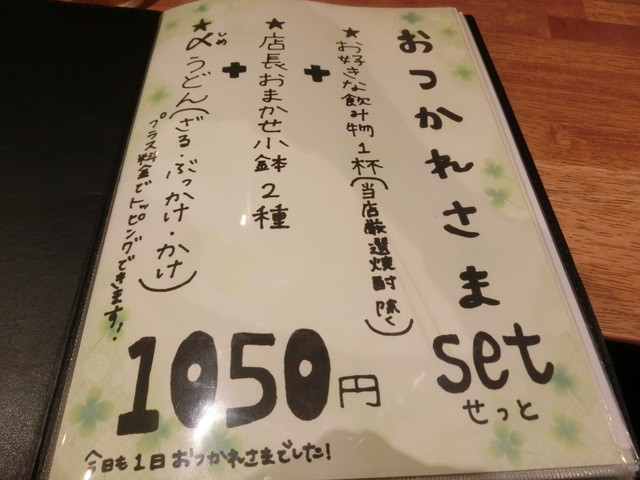 おつかれさま
set
せっと
★お好きな飲み物1杯(当店厳選焼酎除く)
+
★店長おまかせ小鉢2種
+
★〆うどん(ざる・ぶっかけ・かけ)
しめ
プラス料金でトッピングできます!
1050円
今日も1日おつかれさまでした!